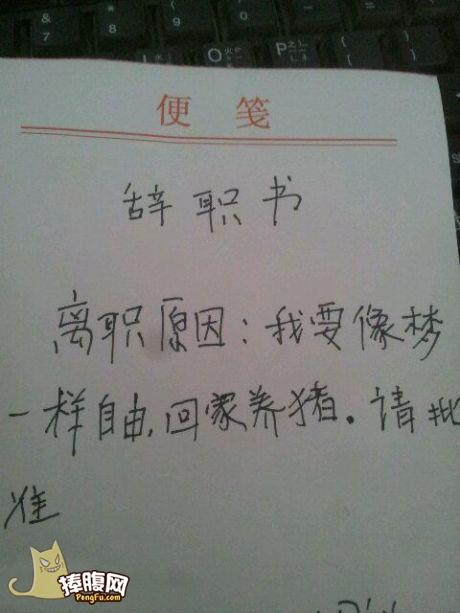 & * ( )
7 8 9 0
O P
便 笺
辞职书
离职原因：我要像梦
一样自由，回家养猪。请批
准
捧腹网
PengFu.com